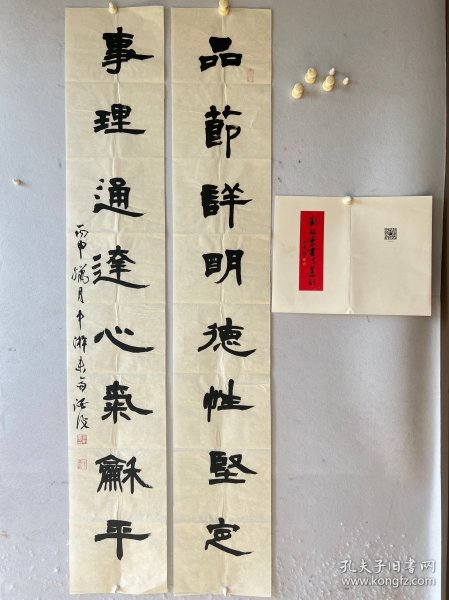 品節詳明德性堅定
事理通達心氣龢平
丙申臘月中澣
孔夫子旧书网
www.kongfz.com